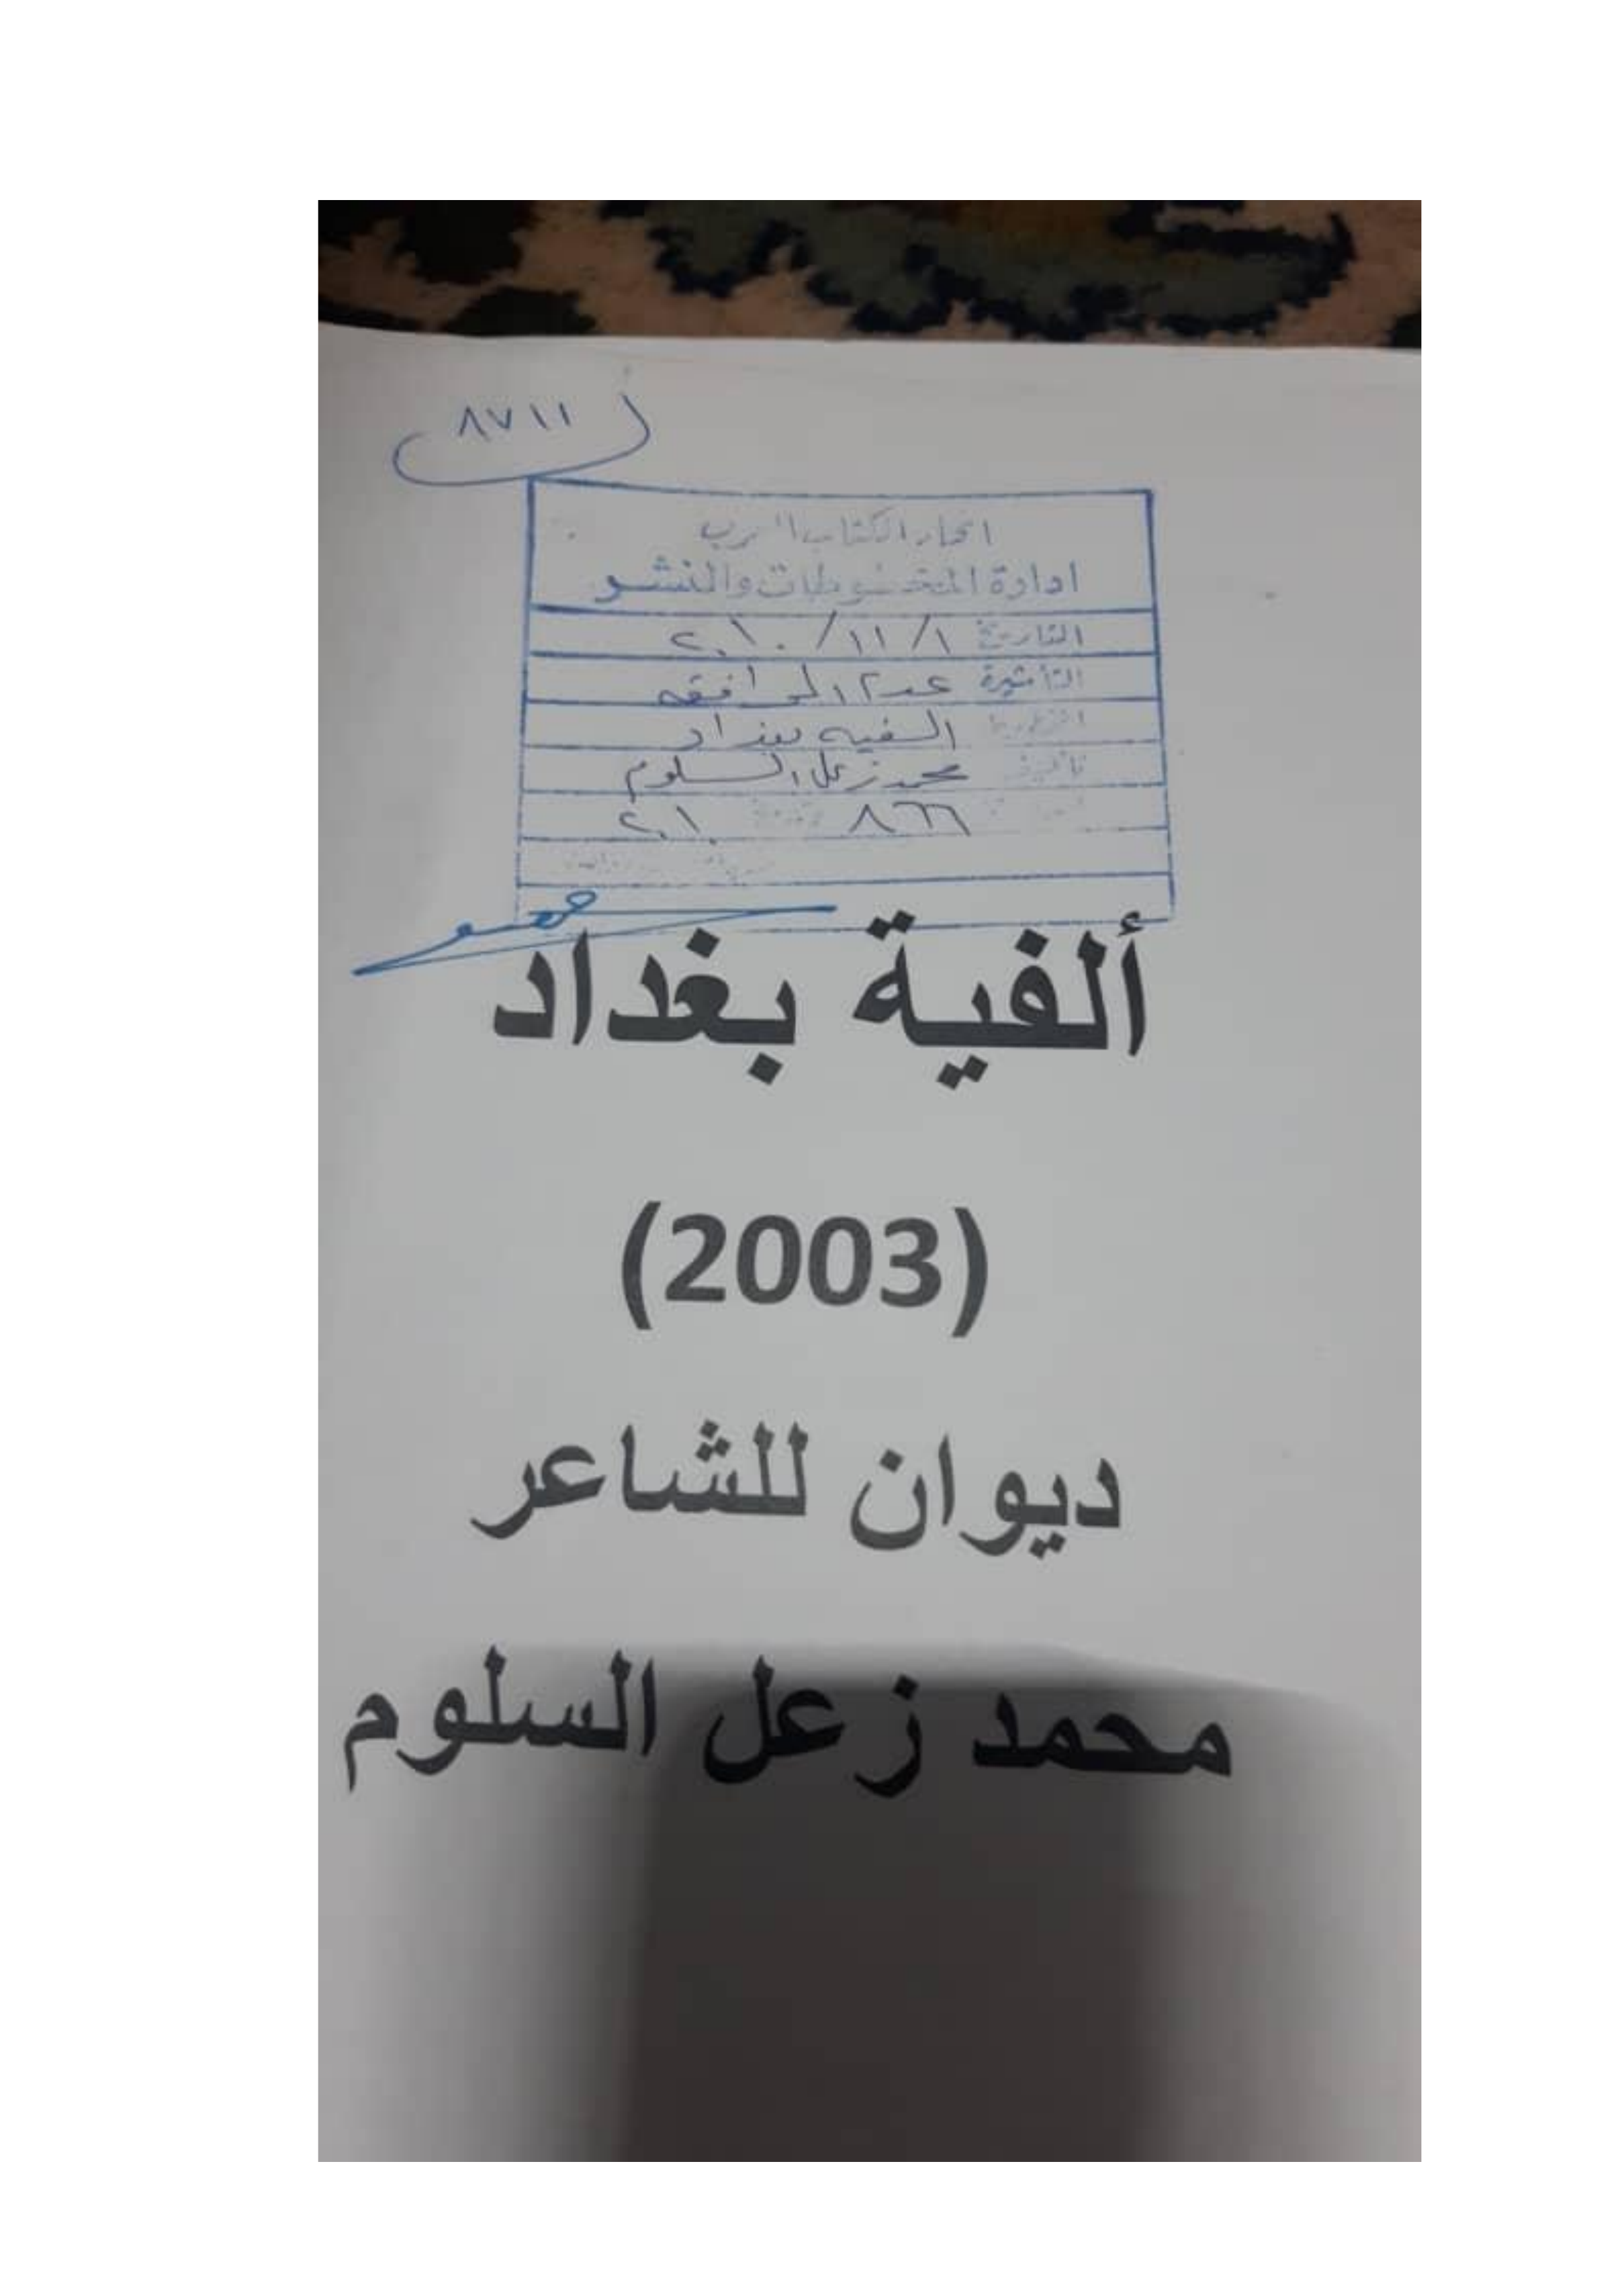 ٨٧١١
اتحاد الكتاب العرب
ادارة المخطوطات والنشر
التاريخ ١/ ١١/ ٢٠١٠
التأشيرة عدم الموافقه
الفيه بغداد
تأليف محمد زعل السلوم
٨٦٦ ٢٠١٠
ألفية بغداد
(2003)
ديوان للشاعر
محمد زعل السلوم